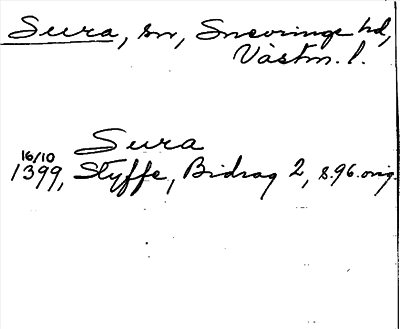 Sura, sn, Snevringe hd,
Västm. l.
Sura
16/10
1399, Styffe, Bidrag 2, s.96. orig.